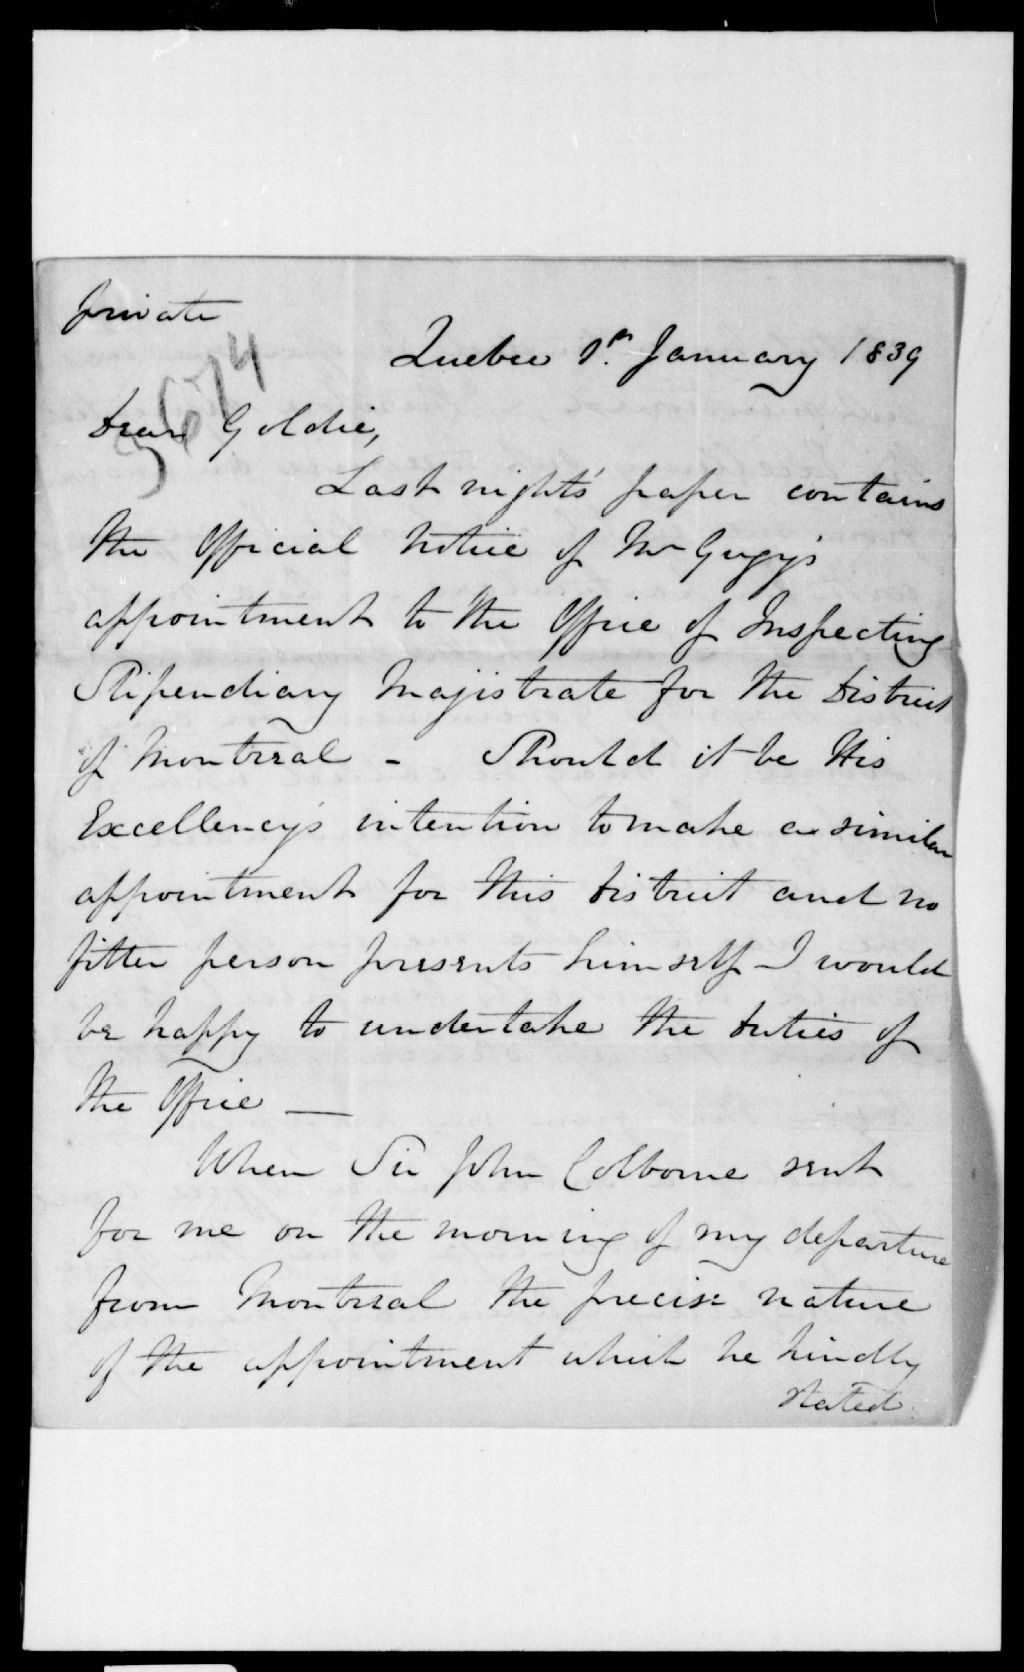 Private
Quebec 9th January 1839
3674
Dear Goldie,
Last night's paper contains
the Official Notice of Mr Gugy's
appointment to the Office of Inspecting
Stipendiary Magistrate for the District
of Montreal - Should it be His
Excellency's intention to make a similar
appointment for this District and no
fitter person presents himself - I would
be happy to undertake the duties of
the Office —
When Sir John Colborne sent
for me on the morning of my departure
from Montreal the precise nature
of the appointment which he kindly
stated